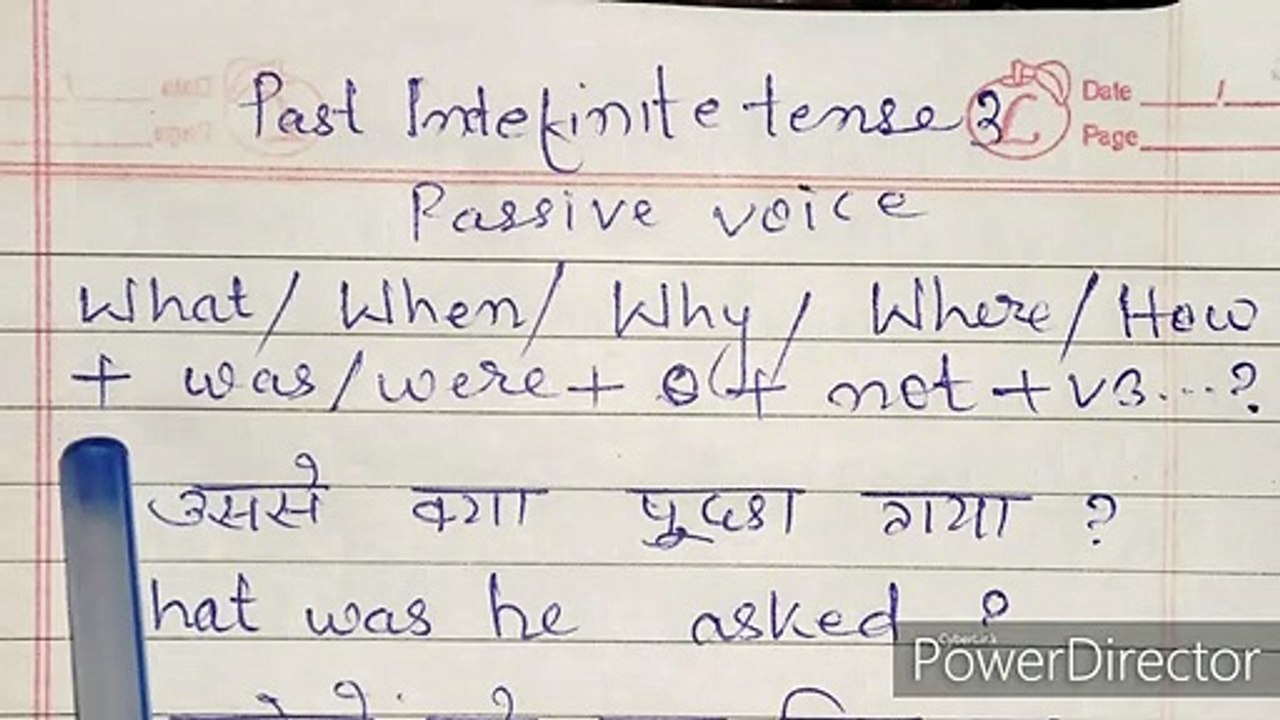 Past Indefinite tense 3
Date / 
Page
Passive voice
What/ When/ Why/ Where/ How
+ was/were + not + V3...?
उससे क्या पूछा गया ?
hat was he asked ?
CyberLink
PowerDirector